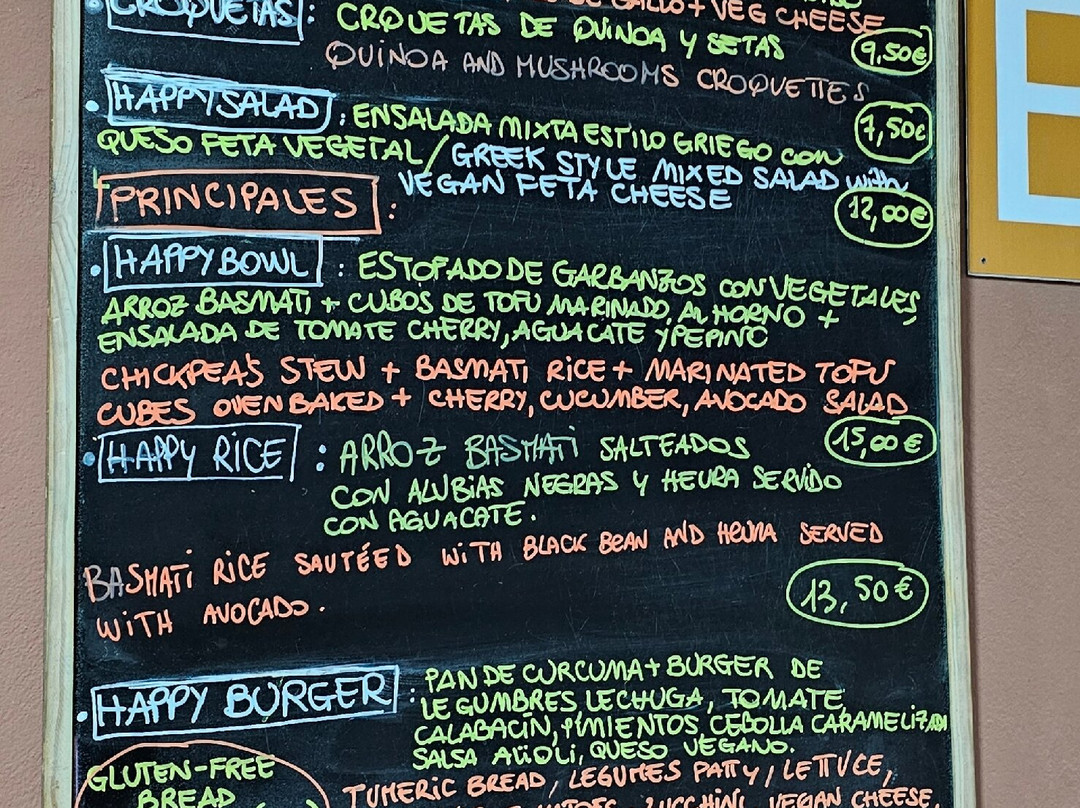 + VEG CHEESE
CROQUETAS: CROQUETAS DE QUINOA Y SETAS
9,50€
QUINOA AND MUSHROOMS CROQUETTES
• HAPPY SALAD: ENSALADA MIXTA ESTILO GRIEGO CON
7,50€
QUESO FETA VEGETAL / GREEK STYLE MIXED SALAD with
VEGAN FETA CHEESE
PRINCIPALES:
12,00€
• HAPPY BOWL: ESTOFADO DE GARBANZOS CON VEGETALES,
ARROZ BASMATI + CUBOS DE TOFU MARINADO, AL HORNO +
ENSALADA DE TOMATE CHERRY, AGUACATE Y PEPINO
CHICKPEA'S STEW + BASMATI RICE + MARINATED TOFU
CUBES OVEN BAKED + CHERRY, CUCUMBER, AVOCADO SALAD
15,00€
• HAPPY RICE: ARROZ BASMATI SALTEADOS
CON ALUBIAS NEGRAS Y HEURA SERVIDO
CON AGUACATE.
BASMATI RICE SAUTÉED WITH BLACK BEAN AND HEURA SERVED
WITH AVOCADO.
13,50€
• HAPPY BURGER: PAN DE CURCUMA + BURGER DE
LEGUMBRES LECHUGA, TOMATE,
CALABACIN, PIMIENTOS, CEBOLLA CARAMELIZADA
SALSA ALIOLI, QUESO VEGANO.
GLUTEN-FREE
BREAD
TUMERIC BREAD, LEGUMES PATTY, LETTUCE,
ZUCCHINI, VEGAN CHEESE,